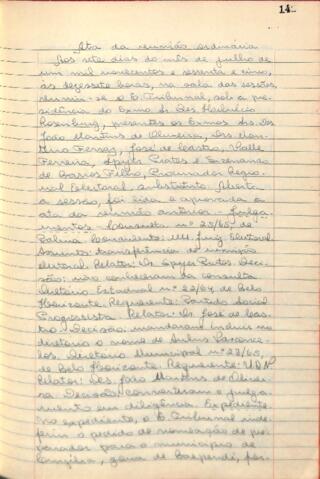 14
Ata da reunião ordinária
Aos sete dias do mês de julho de
um mil novecentos e sessenta e cinco,
às dezessete horas, na sala das sessões,
reuniu-se o E. Tribunal, sob a pre-
sidência do Exmo. Sr. Des.
presentes os Exmos. Srs. Drs.
João Martins de Oliveira, Des.
Ferraz, José de Castro, Valle
Ferreira, Spyer Prates e
de Barros Filho, Procurador Regio-
nal Eleitoral, substituto. Aberta
a sessão, foi lida e aprovada a
ata da reunião anterior. Julga-
mentos. Consulta nº 25/65, de
Palma. Consulente: MM. Juiz Eleitoral
Assunto: transferência de município
eleitoral. Relator: Dr. Spyer Prates. Deci-
são: não conheceram da consulta.
Diretório Estadual nº 22/64, de Belo
Horizonte. Requerente: Partido Social
Progressista. Relator: Dr. José de Cas-
tro. Decisão: mandaram incluir no
diretório o nome de
Diretório Municipal nº 23/65,
de Belo Horizonte. Requerente: UDN
Relator: Des. João Martins de Olivei-
ra. Decisão: converteram o julga-
mento em diligência. Expediente.
No expediente, o E. Tribunal inde-
feriu o pedido de nomeação de pre-
paradores para o município de
zona de Baependi, por